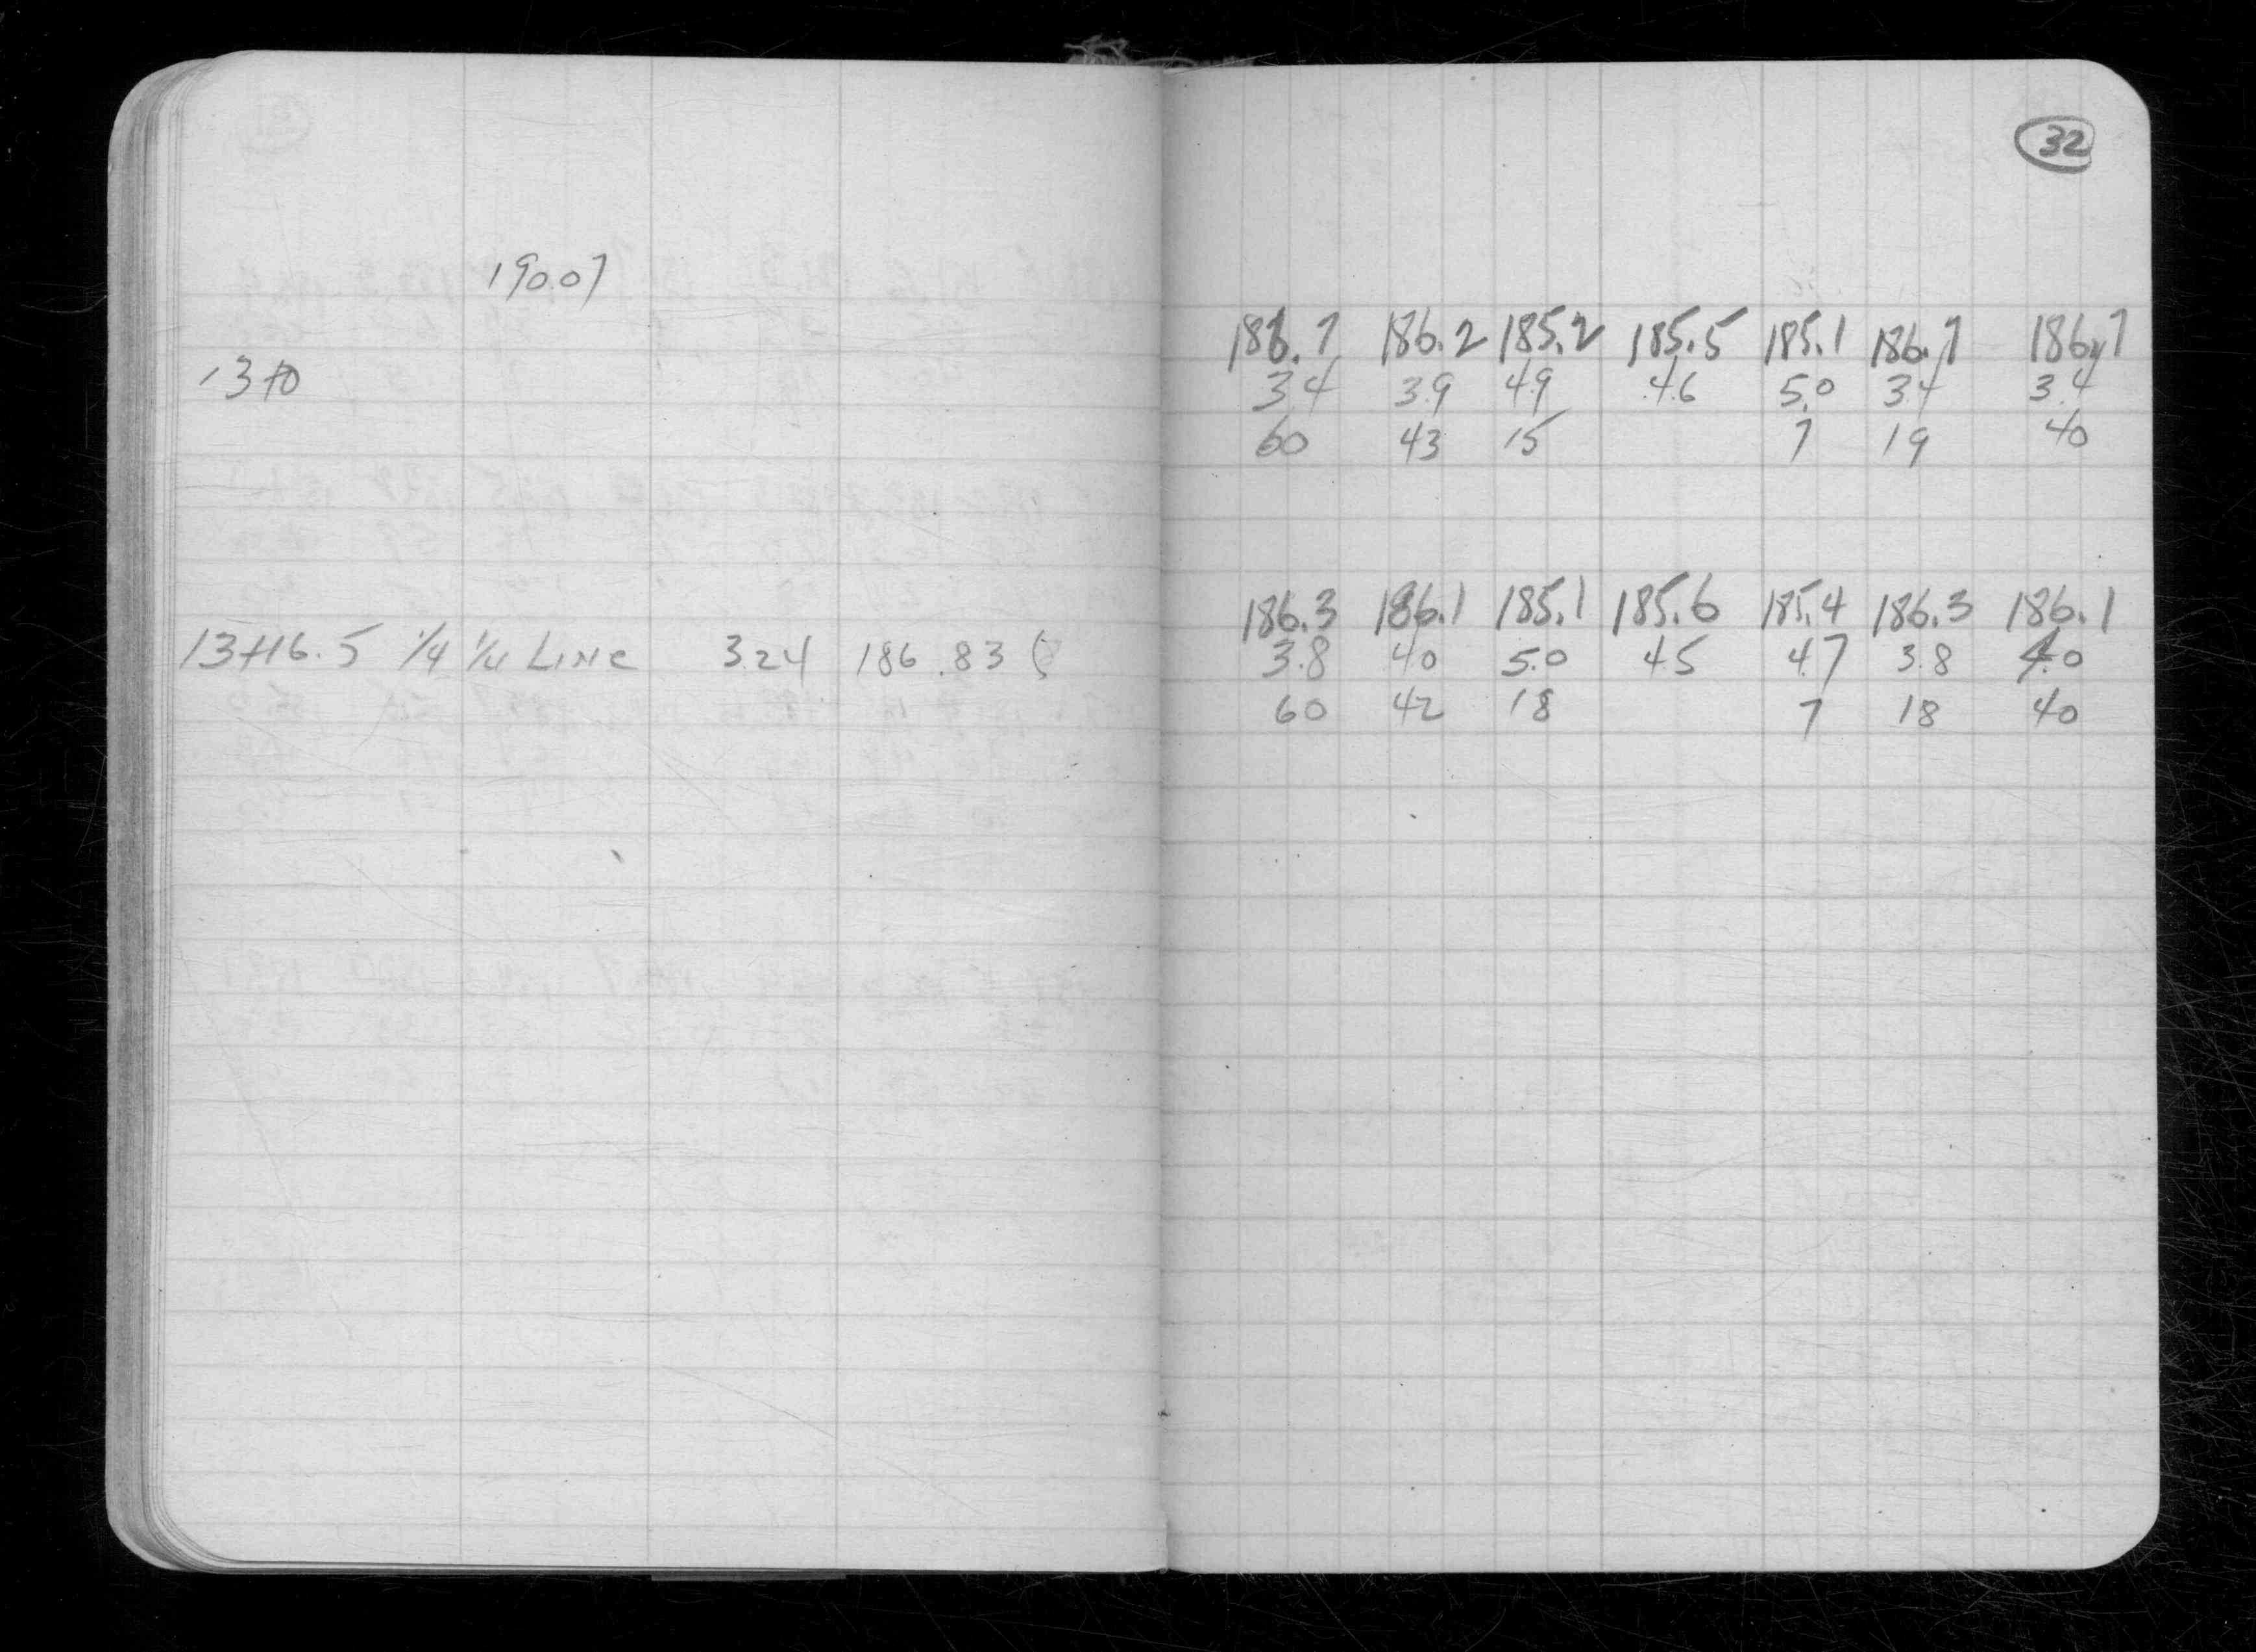 32
190.07
186.7 186.2 185.2 185.5 185.1 186.7 186.7
13+0 3.4 3.9 4.9 4.6 5.0 3.4 3.4
60 43 15 7 19 40
186.3 186.1 185.1 185.6 185.4 186.3 186.1
13+16.5 1/4 1/4 LINE 3.24 186.83 3.8 4.0 5.0 4.5 4.7 3.8 4.0
60 42 18 7 18 40